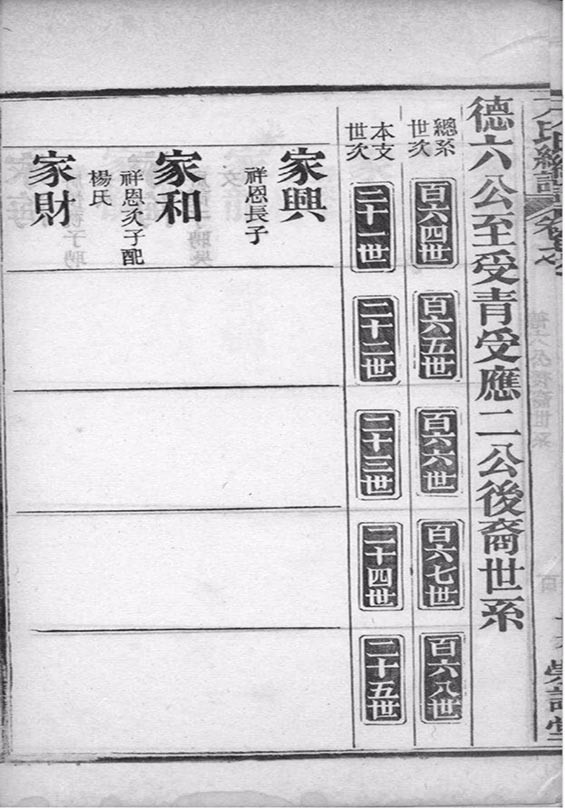 德六公至受青受應二公後裔世系
總系世次
百六四世
百六五世
百六六世
百六七世
百六八世
本支世次
二十一世
二十二世
二十三世
二十四世
二十五世
家興
祥恩長子
家和
祥恩次子配
楊氏
家財